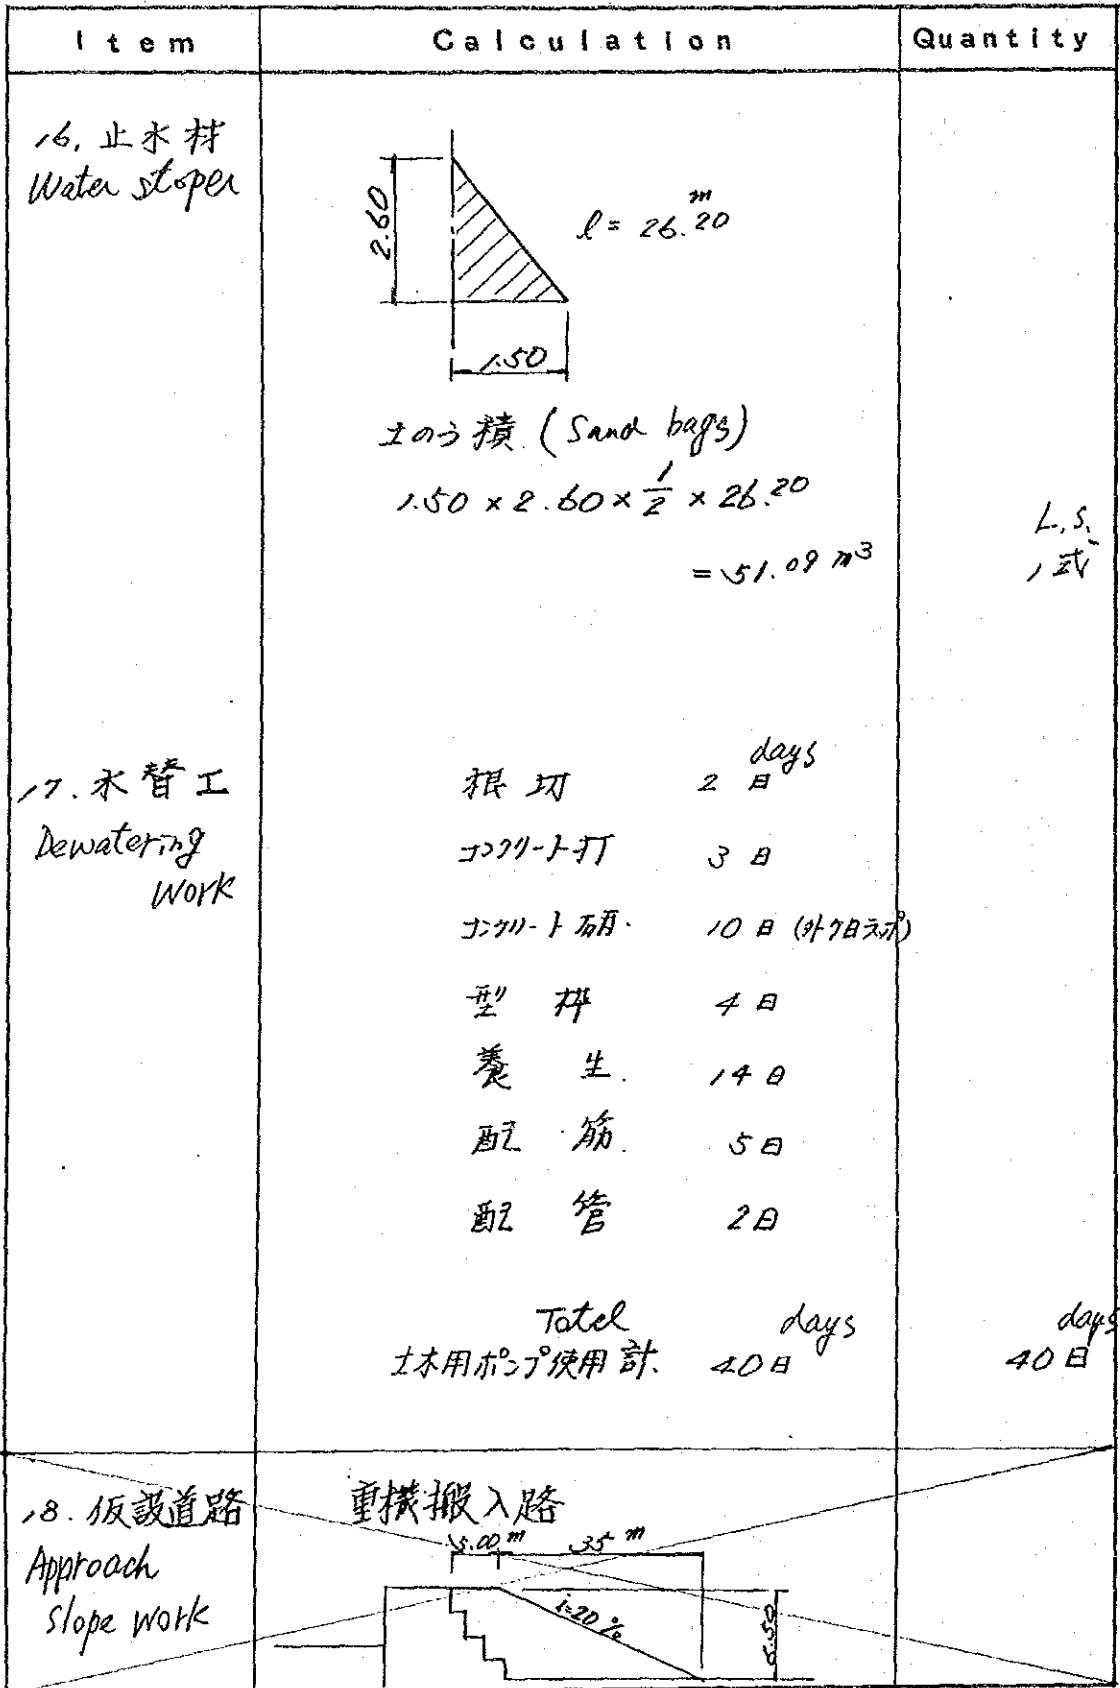 Item Calculation Quantity
16. 止水材
Water stoper
2.60
l = 26.20 m
1.50
土のう積 (Sand bags)
1.50 × 2.60 × 1/2 × 26.20
= 51.09 m³
L.S.
1式
17. 水替工
Dewatering
Work
根切 2日 days
コンクリート打 3日
コンクリート研. 10日
型枠 4日
養生. 14日
配筋. 5日
配管 2日
Total days days
土木用ポンプ使用計. 40日 40日
18. 仮設道路
Approach
slope work
重機搬入路
5.00 m 35 m
i=20%
6.50